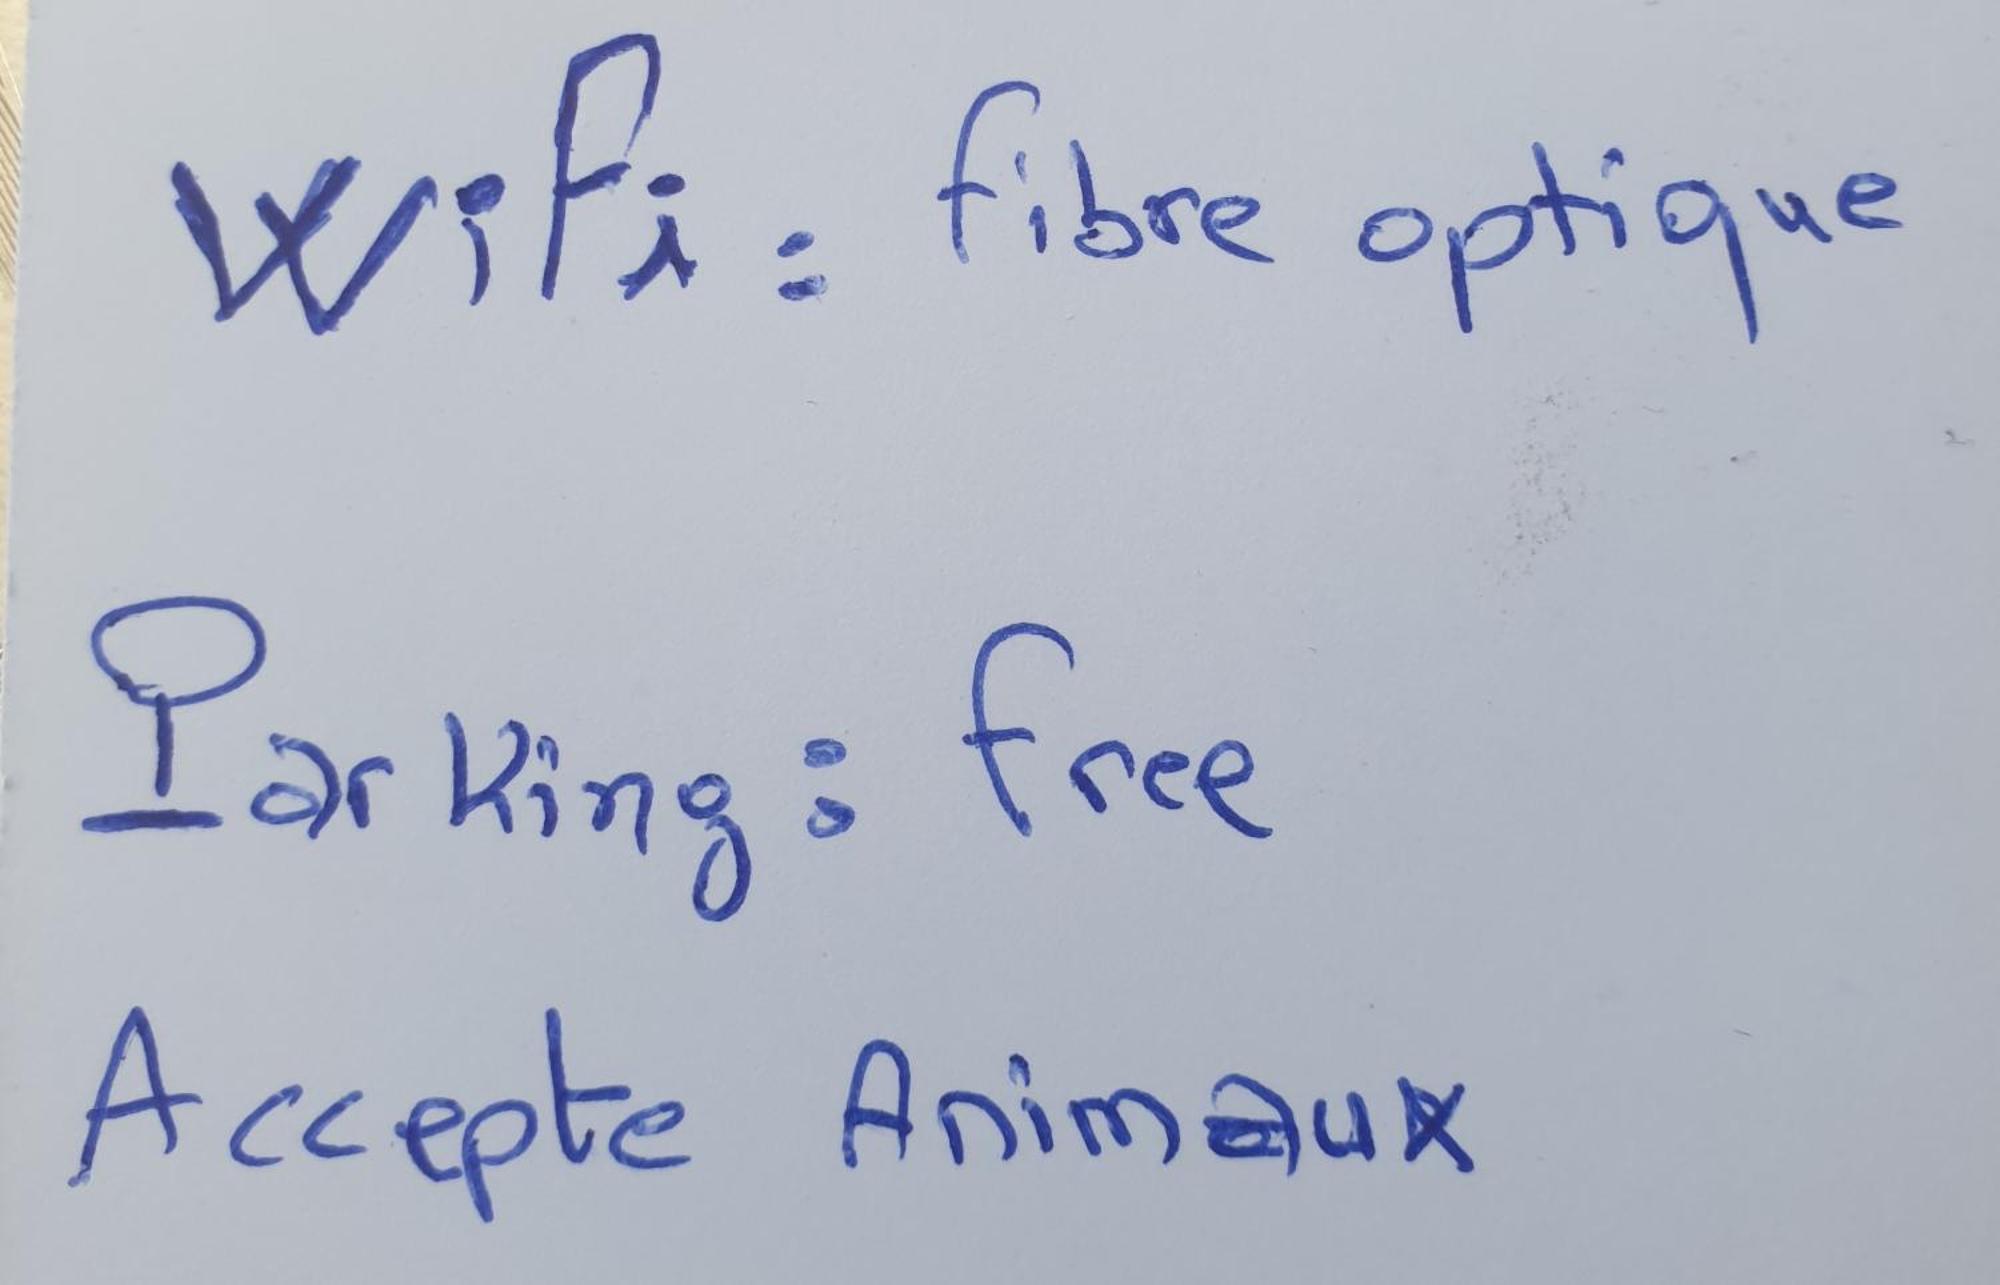 Wifi : fibre optique
Parking : free
Accepte Animaux